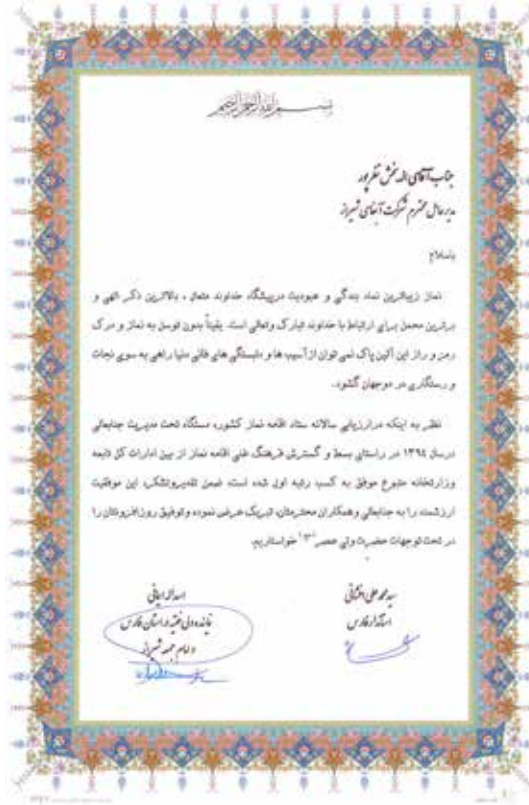 بسم الله الرحمن الرحیم
جناب آقای اله بخش نظرپور
مدیرعامل محترم شرکت آبفای شیراز
باسلام
نماز زیباترین نماد بندگی و عبودیت درپیشگاه خداوند متعال ، بالاترین ذکر الهی و
برترین محمل برای ارتباط با خداوند تبارک وتعالی است. یقیناً بدون توسل به نماز و درک
رمز و راز این آئین پاک نمی توان از آسیب ها و دلبستگی های فانی دنیا راهی به سوی نجات
و رستگاری در دوجهان گشود.
نظر به اینکه درارزیابی سالانه ستاد اقامه نماز کشور، دستگاه تحت مدیریت جنابعالی
درسال ۱۳۹٤ در راستای بسط و گسترش فرهنگ غنی اقامه نماز از بین ادارات کل تابعه
وزارتخانه متبوع موفق به کسب رتبه اول شده است، ضمن تقدیروتشکر، این موفقیت
ارزشمند را به جنابعالی وهمکاران محترمتان، تبریک عرض نموده وتوفیق روزافزونتان را
در تحت توجهات حضرت ولی عصر خواستاریم.
سیدمحمدعلی افشانی
استاندار فارس
اسداله ایمانی
نماینده ولی فقیه در استان فارس
و امام جمعه شیراز